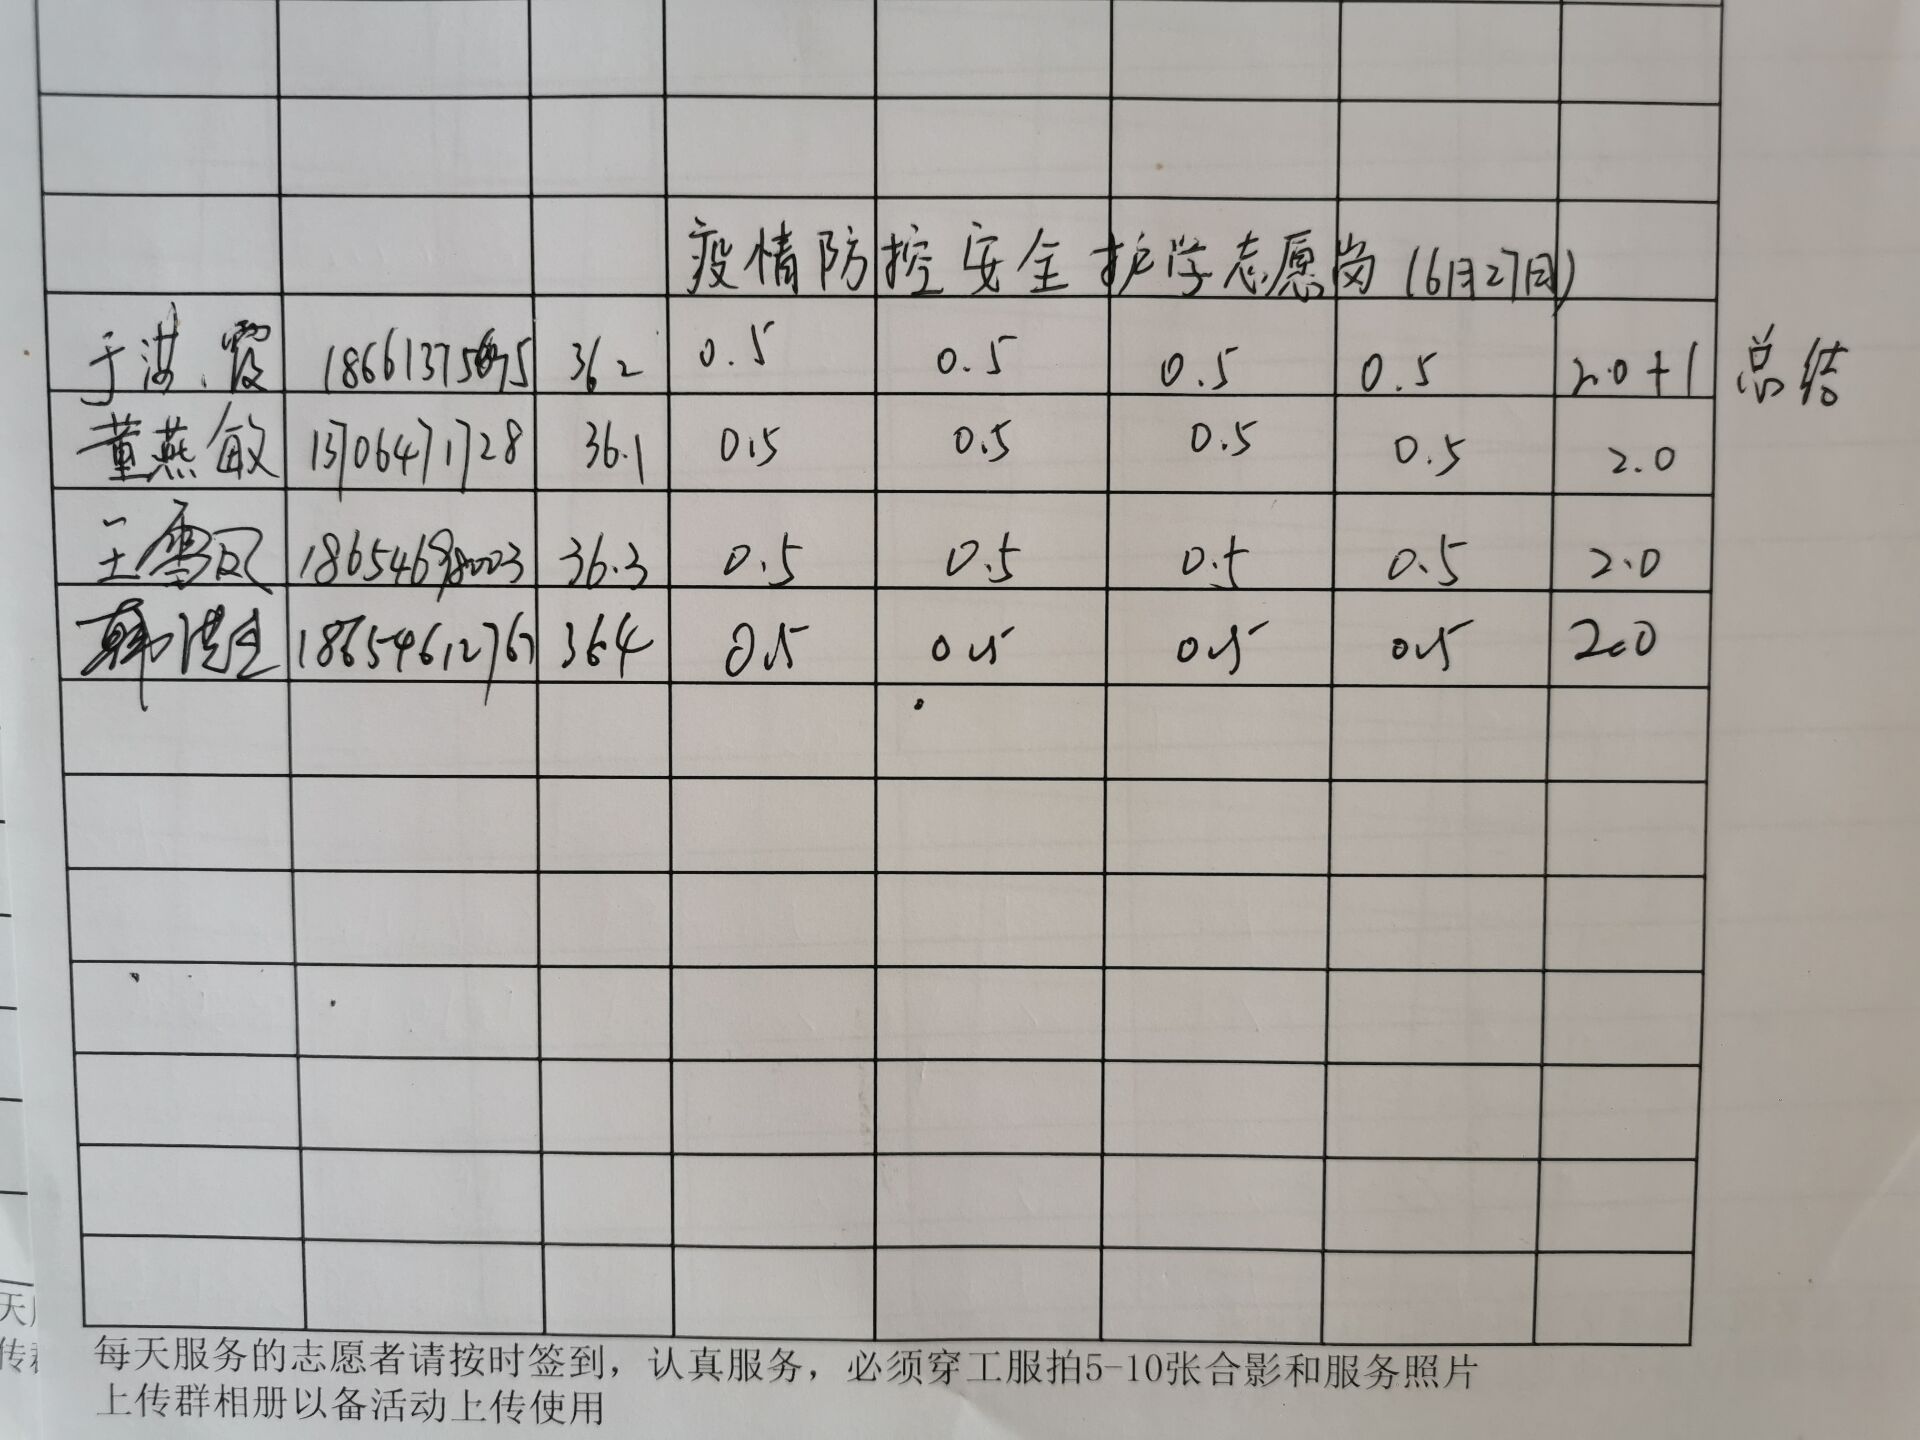 疫情防控安全护学志愿岗(6月27日)
于洪霞 36.2 0.5 0.5 0.5 0.5 2.0+1 总结
董燕敏 13706471728 36.1 0.5 0.5 0.5 0.5 2.0
王雪风 18654698003 36.3 0.5 0.5 0.5 0.5 2.0
韩洪生 18654612767 36.4 0.5 0.5 0.5 0.5 2.0
每天服务的志愿者请按时签到，认真服务，必须穿工服拍5-10张合影和服务照片
上传群相册以备活动上传使用